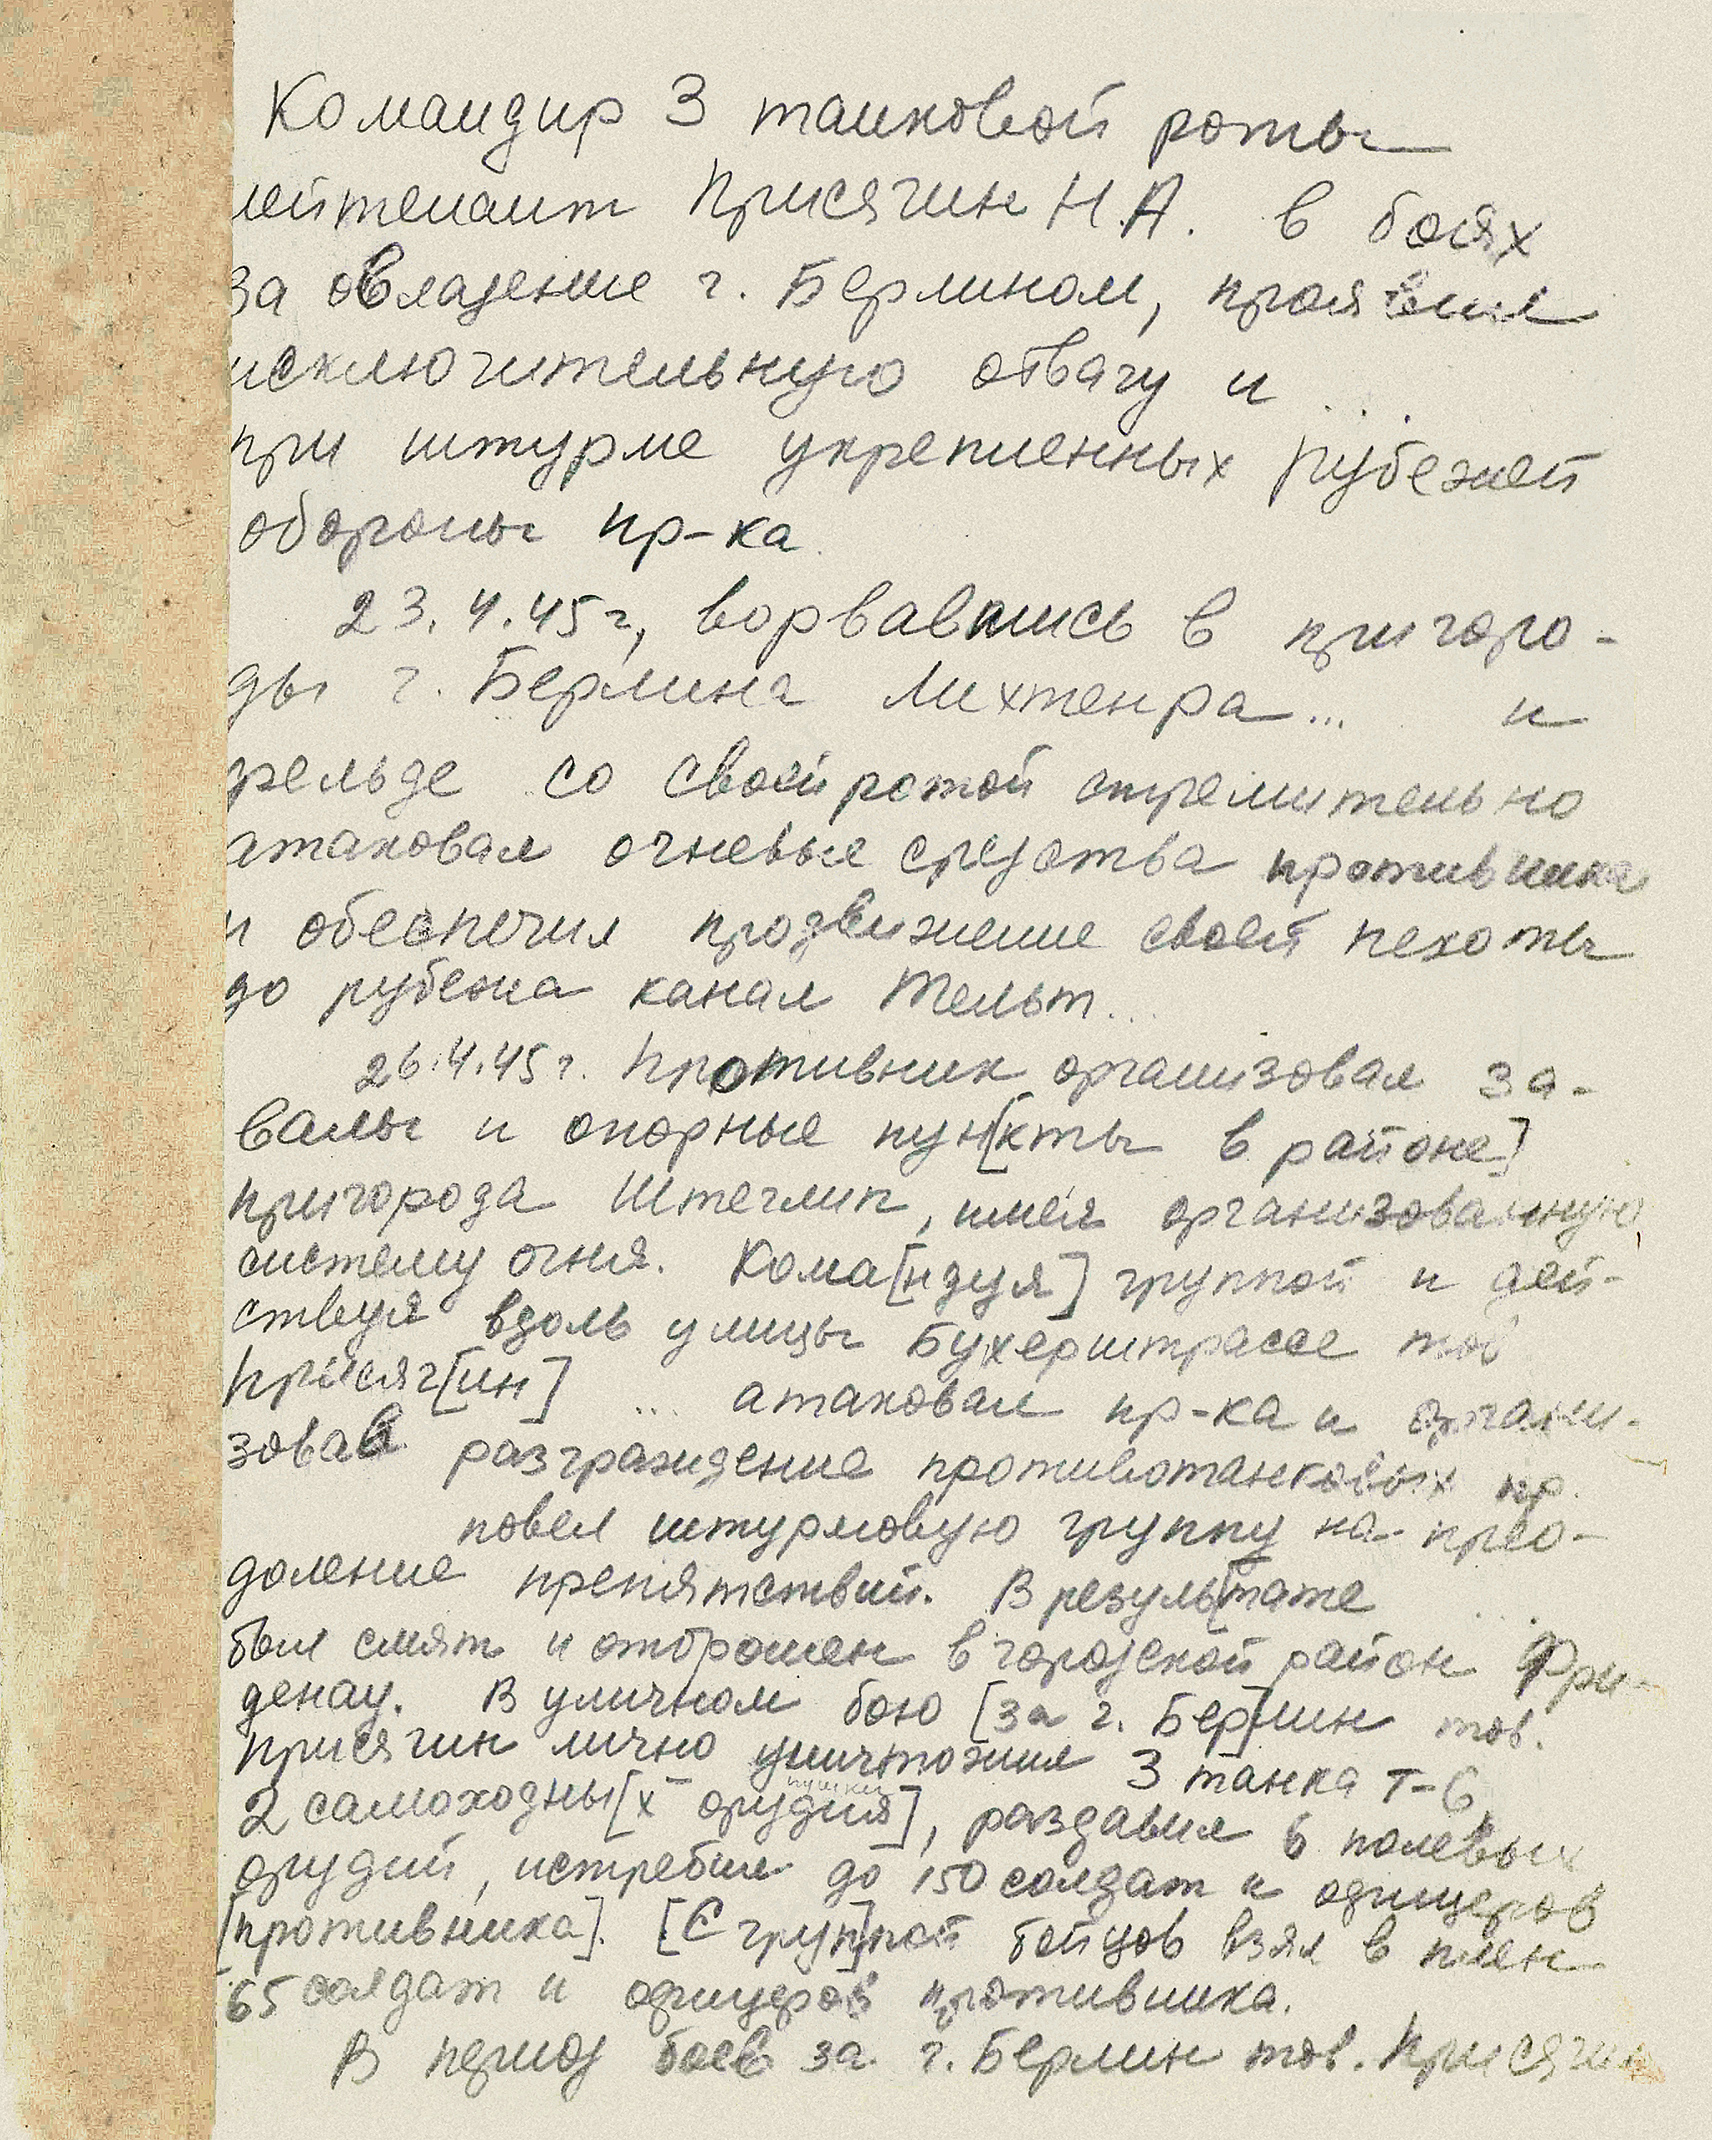 Командир 3 танковой роты
лейтенант Присягин Н.А. в боях
за овладение г. Берлином, проявил
исключительную отвагу и ...
при штурме укрепленных рубежей
обороны пр-ка.
23.4.45г, ворвавшись в пригоро-
ды г. Берлина Лихтенра... и
фельде со своей ротой стремительно
атаковал огневые средства противника
и обеспечил продвижение своей пехоты
до рубежа канал Тельт...
26.4.45г. Противник организовал за-
валы и опорные пун[кты в районе]
пригорода Штеглиц, имея организованную
систему огня. Кома[ндуя] группой и дей-
ствуя вдоль улицы Бухерштрассе тов
Присяг[ин] ... атаковал пр-ка и органи-
зовав разграждение противотанковых пр.
повел штурмовую группу на прео-
доление препятствий. В резуль[тате ...
был смят и отброшен в городской район Фри-
денау. В уличном бою [за г. Бер]лин тов.
Присягин лично уничтожил 3 танка Т-6,
пушки
2 самоходны[х орудия], раздавил 6 полевых
орудий, истребил до 150 солдат и офицеров
[противника]. [С груп]пой бойцов взял в плен
65 солдат и офицеров противника.
В период боев за г. Берлин тов. Присягин